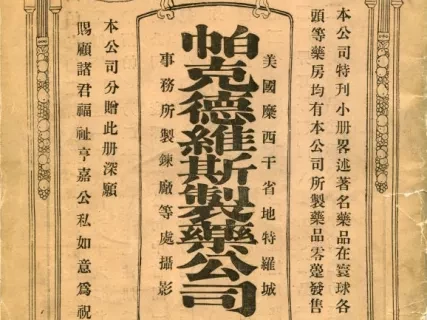 本公司特刊小册畧述著名藥品在寰球各
頭等藥房均有本公司所製藥品零躉發售
美國糜西干省地特羅城
帕克德維斯製藥公司
事務所製鍊廠等處攝影
本公司分贈此册深願
賜顧諸君福祉亨嘉公私如意爲祝